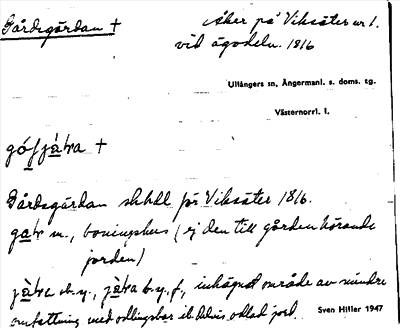 Gårdsgärdan +
Åker på Viksäter nr 1.
vid ägodeln. 1816
Ullångers sn, Ångermanl. s. doms. tg.
Västernorrl. l.
+
Gårdsgärdan på Viksäter 1816.
m., boningshus (ej den till gården hörande
jorden)
inhägnat område av mindre
omfattning med odlingsbar odlad jord.
Sven Hiller 1947